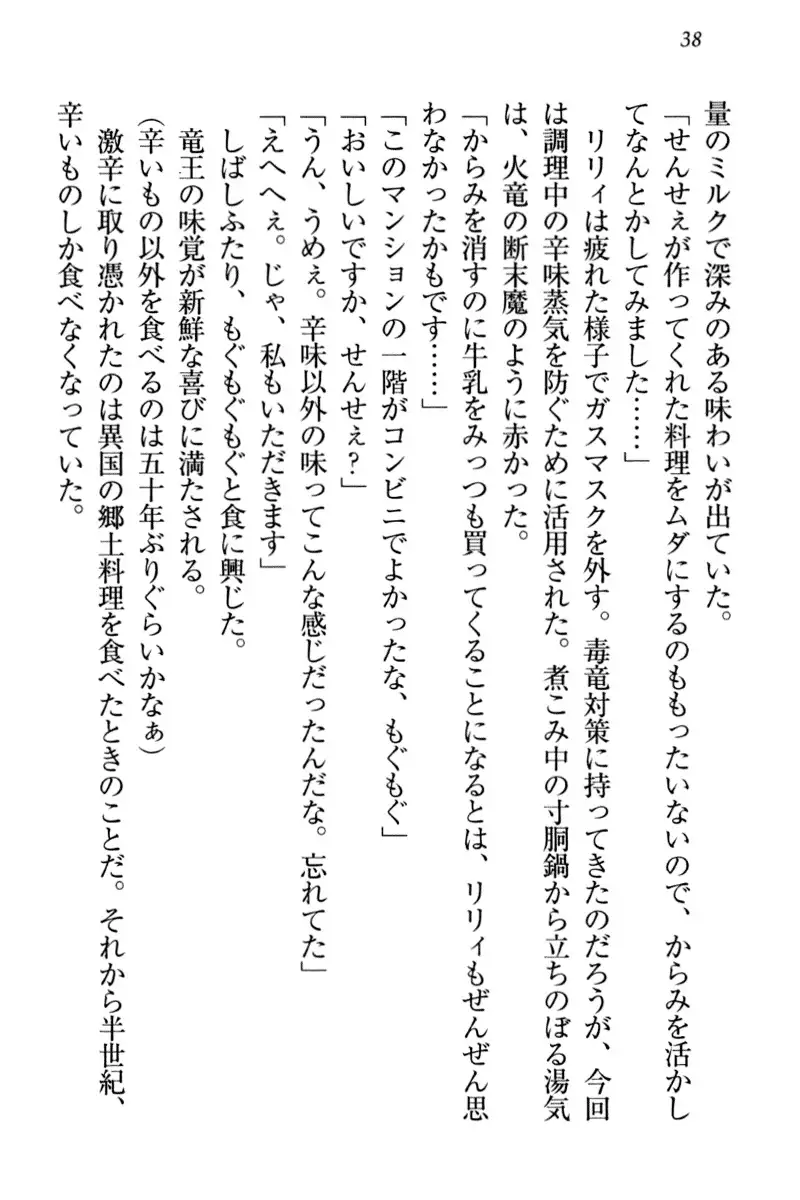 38
量のミルクで深みのある味わいが出ていた。
「せんせぇが作ってくれた料理をムダにするのももったいないので、からみを活かし
てなんとかしてみました……」
リリィは疲れた様子でガスマスクを外す。毒竜対策に持ってきたのだろうが、今回
は調理中の辛味蒸気を防ぐために活用された。煮こみ中の寸胴鍋から立ちのぼる湯気
は、火竜の断末魔のように赤かった。
「からみを消すのに牛乳をみっつも買ってくることになるとは、リリィもぜんぜん思
わなかったかもです……」
「このマンションの一階がコンビニでよかったな、もぐもぐ」
「おいしいですか、せんせぇ？」
「うん、うめぇ。辛味以外の味ってこんな感じだったんだな。忘れてた」
「えへへぇ。じゃ、私もいただきます」
しばしふたり、もぐもぐもぐと食に興じた。
竜王の味覚が新鮮な喜びに満たされる。
（辛いもの以外を食べるのは五十年ぶりぐらいかなぁ）
激辛に取り憑かれたのは異国の郷土料理を食べたときのことだ。それから半世紀、
辛いものしか食べなくなっていた。